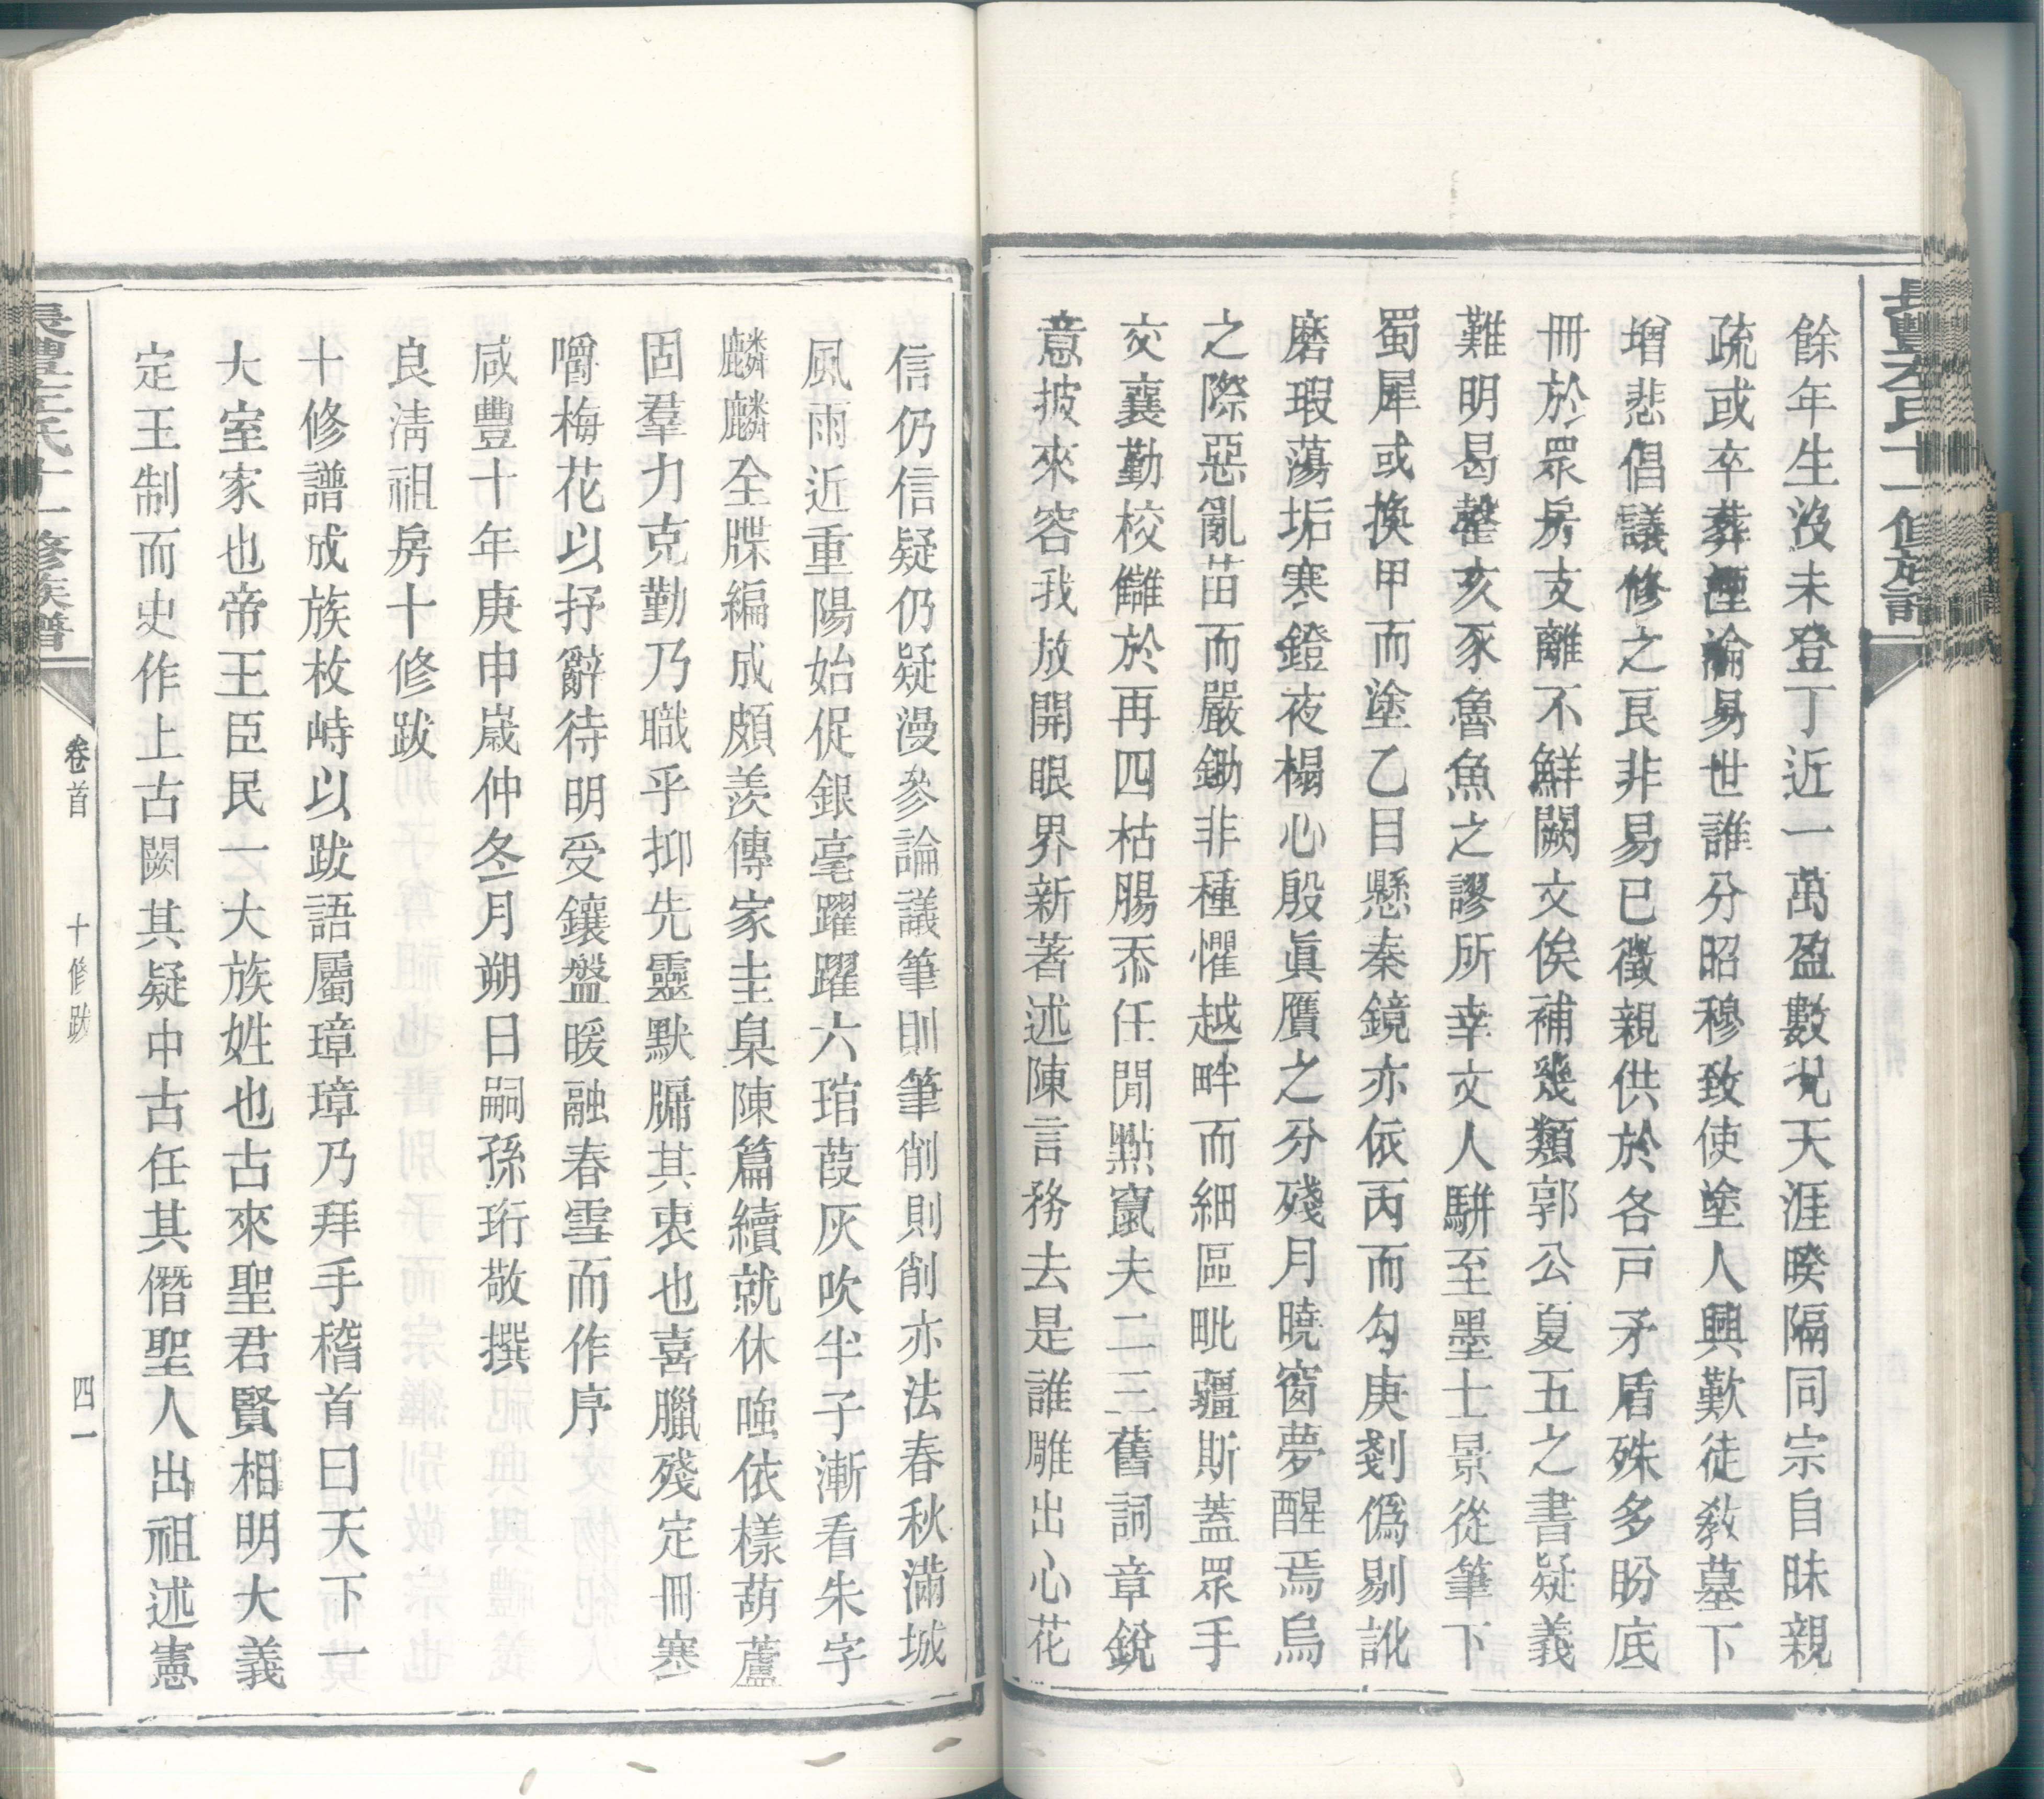 長豐左氏十一修族譜
餘年生沒未登丁近一萬盈數況天涯暌隔同宗自昧親
疏或卒葬湮淪易世誰分昭穆致使塗人興歎徒教墓下
增悲倡議修之艮非易已徵親供於各戸矛盾殊多盼底
冊於眾房支離不鮮闕文俟補幾類郭公夏五之書疑義
難明曷罄亥豕魯魚之謬所幸文人駢至墨士景從筆下
蜀犀或換甲而塗乙目懸秦鏡亦依丙而勾庚剗僞剔訛
磨瑕蕩垢寒鐙夜榻心殷眞贋之分殘月曉窗夢醒焉烏
之際惡亂苗而嚴鋤非種懼越畔而細區毗疆斯蓋眾手
交襄勤校讎於再四枯腸忝任閒點竄夫二三舊詞章銳
意披來容我放開眼界新著述陳言務去是誰雕出心花
信仍信疑仍疑漫參論議筆則筆削則削亦法春秋滿城
風雨近重陽始促銀毫躍躍六琯葭灰吹半子漸看朱字
麟麟全牒編成頗羨傳家圭臬陳篇續就休嗤依樣葫蘆
固羣力克勤乃職乎抑先靈默牖其衷也喜臘殘定冊寒
嚼梅花以抒辭待明受鑲盤暖融春雪而作序
咸豐十年庚申歲仲冬月朔日嗣孫珩敬撰
良淸祖房十修跋
十修譜成族枚峙以跋語屬璋璋乃拜手稽首曰天下一
大室家也帝王臣民一大族姓也古來聖君賢相明大義
定王制而史作上古闕其疑中古任其僭聖人出祖述憲
卷首
十修跋
四一